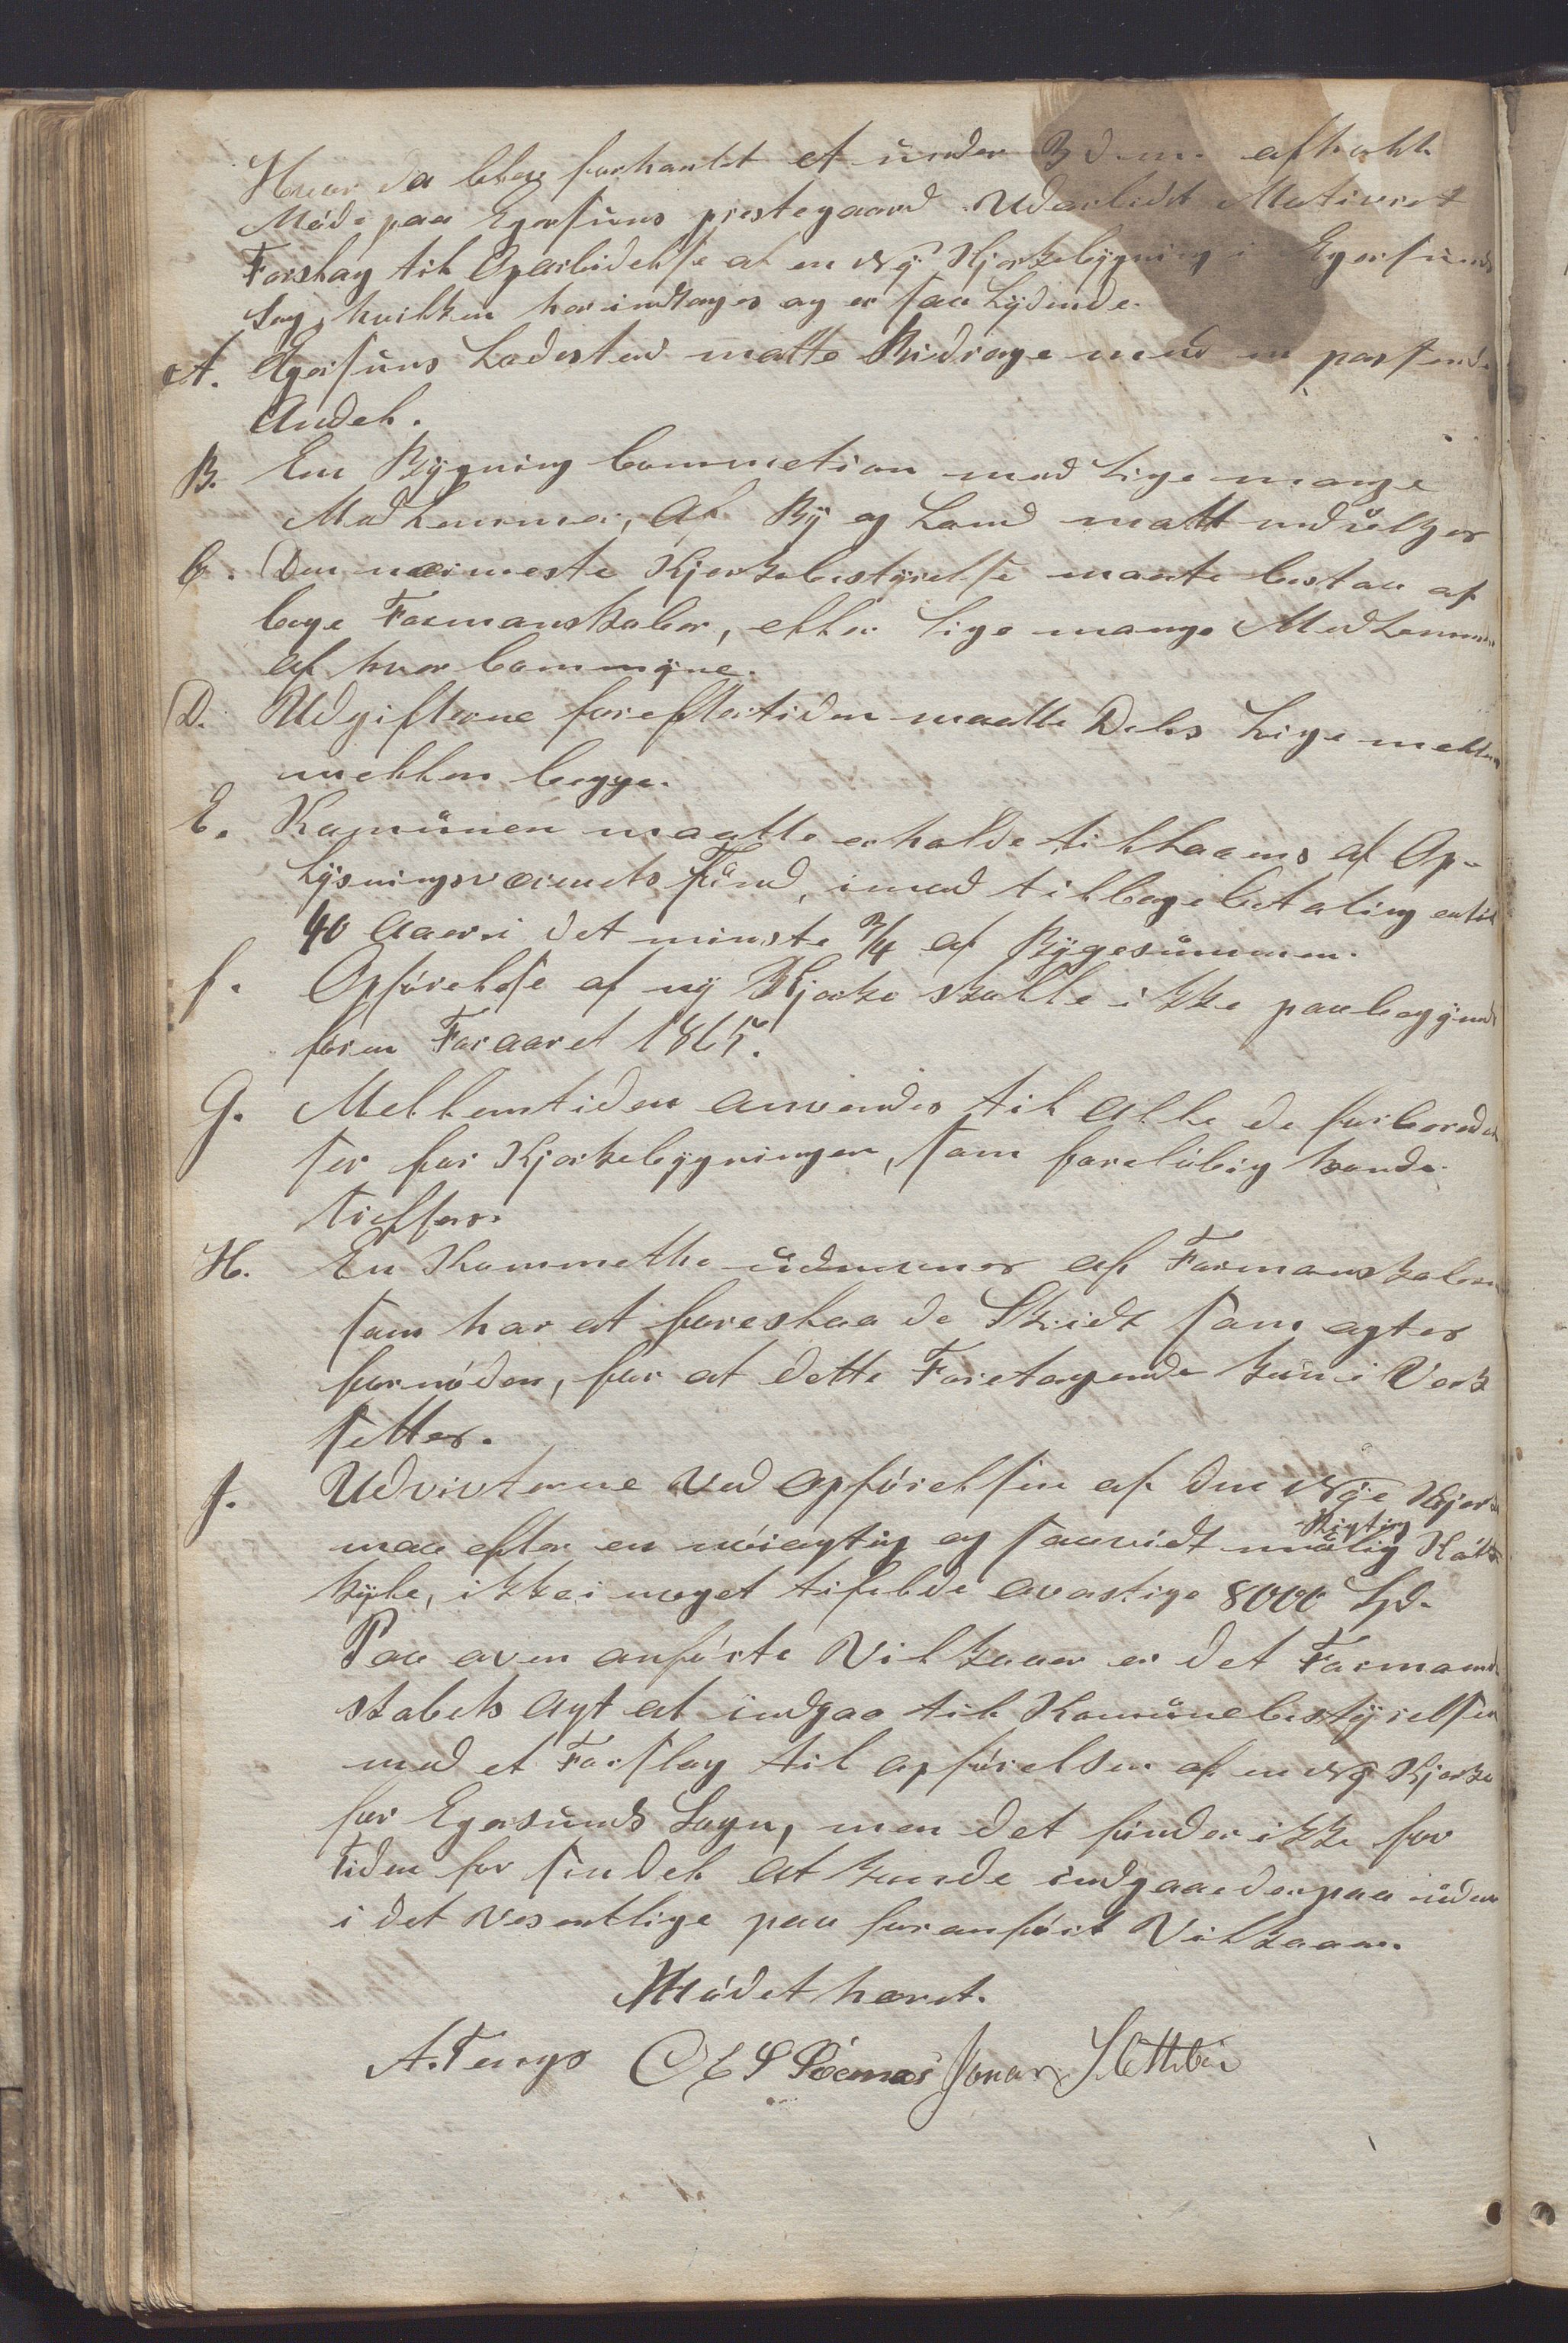 Hvor da bleve forhanlet et under 3 d m. afholdt
Møde paa Egersuns prestegaard Udarbeidet Motiveret
Forslag til Oparbeidelse af en Ny Kjerkebygning i Egersunds
Sog, hvilken her indtages og er saa Lydende.
A. Egersuns Ladested matte Bidrage med en passende
Andel.
B. Em Bygning Commetion med Lige mange
Medlemmer, af By og Land matt nedsetzes
C. Den nærmeste Kjerkebestyrelse maate bestaa af
bege Formanskaber, eller lige mange Medlemmer
af hver Commyne.
D. Udgifterne foreftertiden maatte Deles Lige mellem
mellem begge.
E. Komunen maatte erholde til Laaens af Op-
Lysningsvæsenets Fund, imod tilbagebetaling entil
40 Aaer i det minste 3/4 af Bygesummen.
f. Opførelse af ny Kjerke skulle ikke paabegynes
føren Foraaret 1865.
G. Mellemtiden anvendes til alle de forbered
ser for Kjerkebygningen, som foreløbig kande
trefferes.
H. En Kommethe udnevner af Formanskabern
som har at foreslaa de Skridt som agter
fornøden, for at dette Foretagende kun i Verk
setter.
J. Udvivterne ved opførelsen af den Nye Kjerke
maa efter en nøiagtig og saavidt mulig Rigtig Kalk
kyle, ikke i noget tifelde overstige 8000 Spd.
Paa oven anførte Vilkaaer er det Formand
skabets Agt at indgaa til Komunebestyrelsen
med et Forslag til opførelsen af en Ny Kjerke
for Egersunds Sogn, men det finder ikke for
Tiden for sin Del at kunde indgaa derpaa uden
i det Vesentlige paa foranført Vilkaaer.
Mødet hævet.
A. Tengs O E S Jonas Slettebø